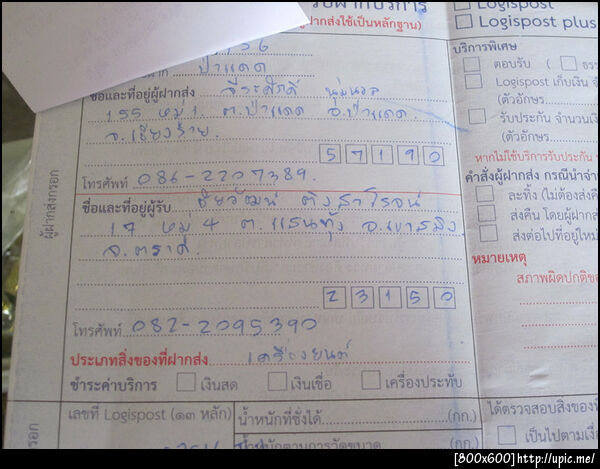 รับฝากบริการ
(ผู้ฝากส่งใช้เป็นหลักฐาน)
Logispost
Logispost plus
156
ป่าแดด
ชื่อและที่อยู่ผู้ฝากส่ง จีระศักดิ์ นุ่มนวล
155 หมู่ 1 ต.ป่าแดด อ.ป่าแดด
จ.เชียงราย
57190
โทรศัพท์ 086-2207389
ชื่อและที่อยู่ผู้รับ ชัยวัฒน์ ตังสาโรจน์
17 หมู่ 4 ต.แสนตุ้ง อ.เขาสมิง
จ.ตราด
23150
โทรศัพท์ 082-2095390
ประเภทสิ่งของที่ฝากส่ง เครื่องยนต์
ชำระค่าบริการ เงินสด เงินเชื่อ เครื่องประทับ
เลขที่ Logispost (๑๓ หลัก) น้ำหนักที่ชั่งได้ (กก.)
น้ำหนักตามการวัดขนาด (กก.)
ผู้ฝากส่งกรอก
บริการพิเศษ
ตอบรับ ( ธรร
Logispost เก็บเงิน
(ตัวอักษร
รับประกัน จำนวนเงิ
(ตัวอักษร
หากไม่ใช้บริการรับประกัน
คำสั่งผู้ฝากส่ง กรณีนำจ่า
ละทิ้ง (ไม่ต้องส่งคื
ส่งคืน โดยผู้ฝากส่
ส่งต่อไปที่อยู่ใหม่
หมายเหตุ
สภาพผิดปกติขอ
ได้ตรวจสอบสิ่งของที่
เป็นไปตามเงื่
[800x600]http://upic.me/